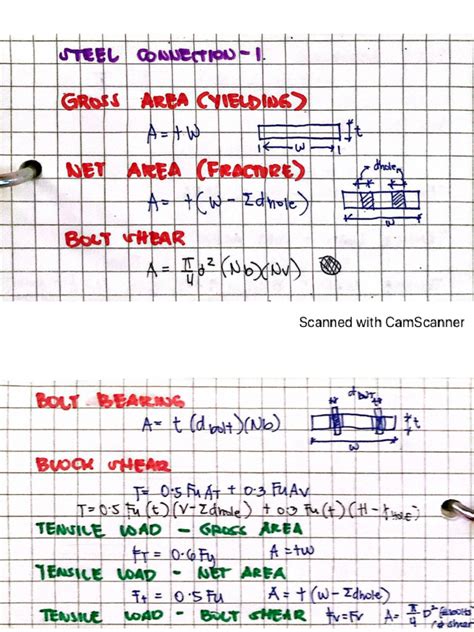 STEEL CONNECTION - 1.
GROSS AREA (YIELDING)
A = tW
t
W
NET AREA (FRACTURE)
dhole
A = t(W - Σdhole)
W
BOLT SHEAR
A = π/4 d² (Nb)(Nv)
Scanned with CamScanner
BOLT BEARING
dBOLT
A = t (dbolt)(Nb)
t
W
BLOCK SHEAR
T = 0.5 Fu AT + 0.3 Fu AV
T = 0.5 Fu (t)(V - Σdhole) + 0.3 Fu (t)(H -
TENSILE LOAD - GROSS AREA
FT = 0.6Fy A = tW
TENSILE LOAD - NET AREA
Ft = 0.5Fu A = t(W - Σdhole)
TENSILE LOAD - BOLT SHEAR fv = Fv A = π/4 D²